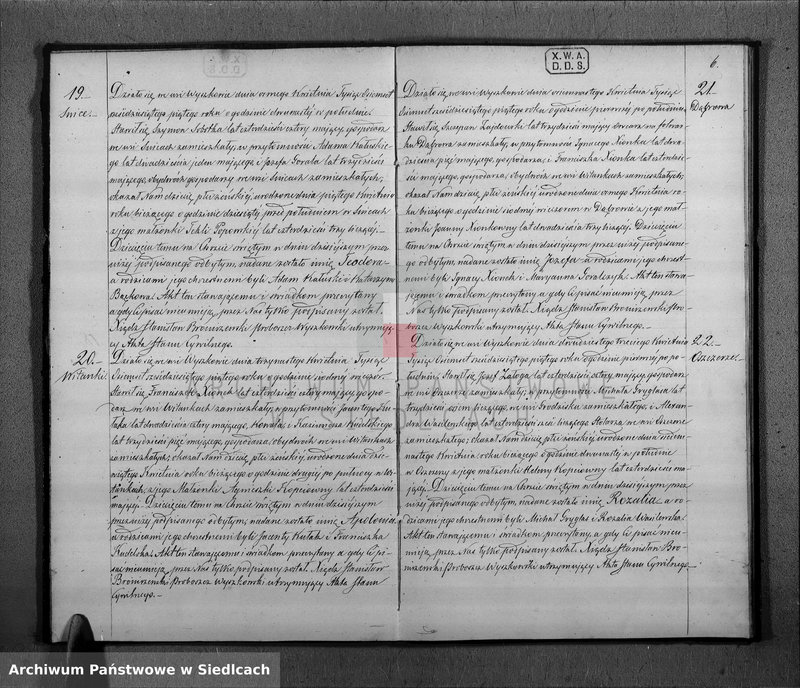 X.W.A.
D.D.S.
6.
19.
Śnice.
Działo się we wsi Wyszkowie dnia ósmego Kwietnia Tysiąc Ośmset
sześćdziesiątego piątego roku o godzinie dwunastéj w południe.
Stawił się Szymon Sobotka lat czterdzieści cztery mający, gospodarz
we wsi Śnicach zamieszkały, w przytomności Adama Kałuskie-
go lat dwadzieścia jeden mającego i Józefa Gorala lat trzydzieści
mającego, obydwóch gospodarzy we wsi Śnicach zamieszkałych;
okazał Nam dziecię płci żeńskiéj, urodzone dnia piątego Kwietnia
roku bieżącego o godzinie dziesiątéj przed południem w Śnicach
z jego małżonki Tekli lat czterdzieści trzy liczącéj.
Dziecięciu temu na Chrzcie świętym w dniu dzisiejszym przez
niżéj podpisanego odbytym, nadane zostało imię Teodora
a rodzicami jego chrzestnemi byli Adam Kałuski i Katarzyna
Bąckowa. Akt ten stawającemu i świadkom przeczytany
a gdy ci pisać nieumieją, przez Nas tylko podpisany został.
Xiądz Stanisław Proboszcz Wyszkowski utrzymują-
cy Akta Stanu Cywilnego.
20.
Witanki.
Działo się we wsi Wyszkowie dnia trzynastego Kwietnia Tysiąc
Ośmset sześćdziesiątego piątego roku o godzinie siódméj wieczór.
Stawił się Franciszek Xionek lat czterdzieści cztery mający, gospo-
darz we wsi Witankach zamieszkały, w przytomności Jacentego Ku-
taka lat dwadzieścia cztery mającego, Kowala, i Kazimierza Kudelskiego
lat trzydzieści pięć mającego, gospodarza, obydwóch we wsi Witankach
zamieszkałych; okazał Nam dziecię płci żeńskiéj, urodzone dnia dzie-
wiątego Kwietnia roku bieżącego o godzinie drugiéj po północy w Wi-
tankach, z jego Małżonki Agnieszki Kopciówny lat czterdzieści
mającéj. Dziecięciu temu na Chrzcie świętym w dniu dzisiejszym
przez niżéj podpisanego odbytym, nadane zostało imię Apolonia
a rodzicami jego chrzestnemi byli Jacenty Kutak i Franciszka
Kudelska. Akt ten stawającemu i świadkom przeczytany a gdy ci pi-
sać nieumieją, przez Nas tylko podpisany został. Xiądz Stanisław
Proboszcz Wyszkowski utrzymujący Akta Stanu
Cywilnego.
21.
Dąbrowa
Działo się we wsi Wyszkowie dnia ośmnastego Kwietnia Tysiąc
Ośmset sześćdziesiątego piątego roku o godzinie pierwszéj po południu.
Stawił się Szczepan Zajdowski lat trzydzieści mający dworak na folwar-
ku Dąbrowa zamieszkały, w przytomności Ignacego Xionka lat dwa-
dzieścia pięć mającego, gospodarza, i Franciszka Xionka lat czterdzie-
ści mającego, gospodarza, obydwóch we wsi Witankach zamieszkałych;
okazał Nam dziecię płci żeńskiéj urodzone dnia ósmego Kwietnia ro-
ku bieżącego o godzinie siódméj wieczorem w Dąbrowie z jego mał-
żonki Joanny Xionkowny lat dwadzieścia trzy liczącéj. Dziecięciu
temu na Chrzcie świętym w dniu dzisiejszym przez niżéj podpisane-
go odbytym, nadane zostało imię Józefa a rodzicami jego chrzest-
nemi byli Ignacy Xionek i Maryanna Goralczyk. Akt ten stawa-
jącemu i świadkom przeczytany, a gdy ci pisać nieumieją, przez
Nas tylko podpisany został. Xiądz Stanisław Pro-
boszcz Wyszkowski utrzymujący Akta Stanu Cywilnego.
22.
Działo się we wsi Wyszkowie dnia dwudziestego trzeciego Kwietnia
Tysiąc Ośmset sześćdziesiątego piątego roku o godzinie pierwszéj po po-
łudniu. Stawił się Józef Załoga lat czterdzieści cztery mający, gospodarz
we wsi zamieszkały, w przytomności Michała Gryglasa lat
trzydzieści ośm liczącego, we wsi Grodzisku zamieszkałego, i Alexan-
dra Wasilewskiego lat czterdzieści sześć liczącego Stolarza we wsi
zamieszkałego; okazał Nam dziecię płci żeńskiéj urodzone dnia
Kwietnia roku bieżącego o godzinie dwunastéj w południe
w z jego małżonki Heleny Kopciówny lat czterdzieści ma-
jącéj. Dziecięciu temu na Chrzcie świętym w dniu dzisiejszym przez
niżéj podpisanego odbytym, nadane zostało imię Rozalia a ro-
dzicami jego chrzestnemi byli Michał Gryglas i Rozalia Wasilewska.
Akt ten stawającemu i świadkom przeczytany, a gdy ci pisać nieu-
mieją, przez Nas tylko podpisany został. Xiądz Stanisław
Proboszcz Wyszkowski utrzymujący Akta Stanu Cywilnego.
ARCHIWUM PAŃSTWOWE
W SIEDLCACH
Archiwum Państwowe w Siedlcach